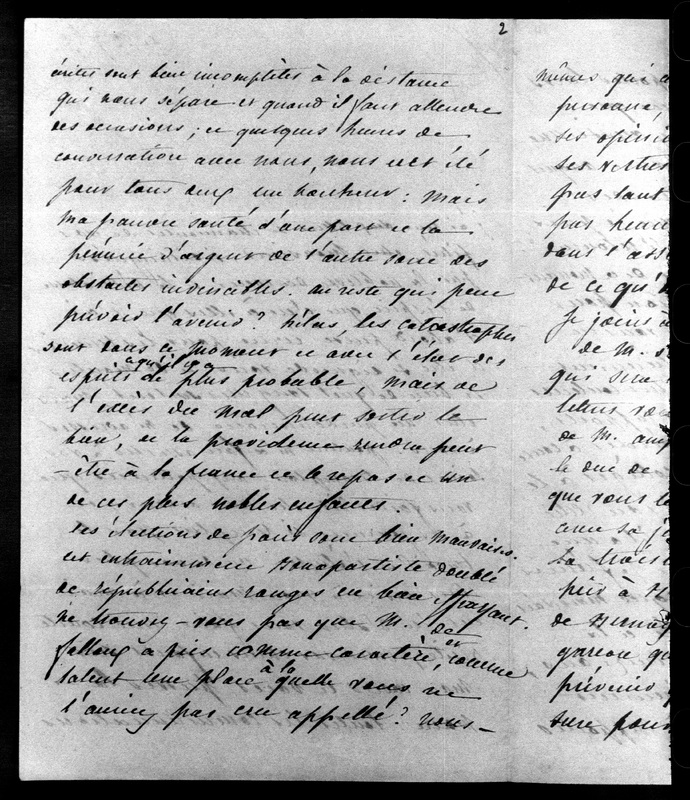 2
écrites sont bien incomplètes à la distance
qui nous sépare et quand il faut attendre
des occasions; et quelques heures de
conversation avec vous, nous eut été
pour tous deux un bonheur: mais
ma pauvre santé d'une part et la
pénurie d'argent de l'autre sont des
obstacles invincibles. au reste qui peut
prévoir l'avenir? hélas, les catastrophes
sont dans ce moment et avec l'état des
esprits ce qu'il y a de plus probable mais de
l'excès du mal peut sortir le
bien, et la providence rendra peut
-être à la france et le repos et un
de ces plus nobles enfants.
les élections de paris sont bien mauvaises.
cet entrainement Bonapartiste doublé
de républicains rouges est bien effrayant.
ne trouvez-vous pas que M. de
falloux a pris comme caractère, et comme
talent une place à la quelle vous ne
l'auriez pas cru appellé? nous-
mêmes qui a
personne,
ses opini
ses vertus
pas tant
pas heu
dans l'ass
de ce qu'
je joins à
de M. s
qui
lettres
de M.
le duc de
que vous le
avec sa
la trois
pris à
de
garçon qu
prévenir
sure pour